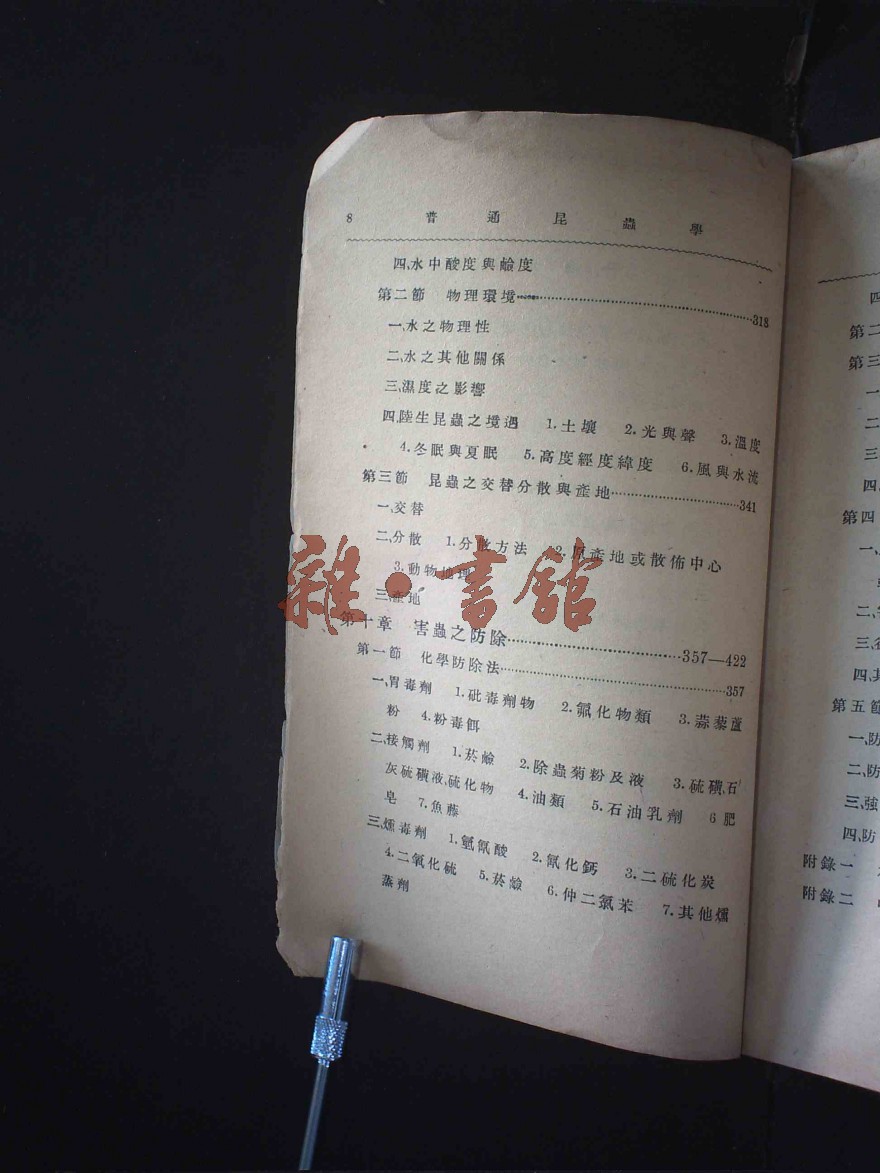 8 普通昆蟲學
四、水中酸度與鹼度
第二節 物理環境……318
一、水之物理性
二、水之其他關係
三、濕度之影響
四、陸生昆蟲之境遇 1.土壤 2.光與聲 3.溫度
4.冬眠與夏眠 5.高度經度緯度 6.風與水流
第三節 昆蟲之交替分散與產地……341
一、交替
二、分散 1.分散方法 2.原產地或散佈中心
3.動物地理
三、產地
雜·書館
第十章 害蟲之防除……357—422
第一節 化學防除法……357
一、胃毒劑 1.砒毒劑物 2.氟化物類 3.蒜藜蘆
粉 4.粉毒餌
二、接觸劑 1.菸鹼 2.除蟲菊粉及液 3.硫磺,石
灰硫磺液,硫化物 4.油類 5.石油乳劑 6肥
皂 7.魚藤
三、燻毒劑 1.氫氰酸 2.氰化鈣 3.二硫化炭
4.二氧化硫 5.菸鹼 6.仲二氯苯 7.其他燻
蒸劑
第二
第三
一、
二、
三、
四、
第四
一、
二、
三、
四、其
第五節
一、防
二、防
三、強
四、防
附錄一
附錄二